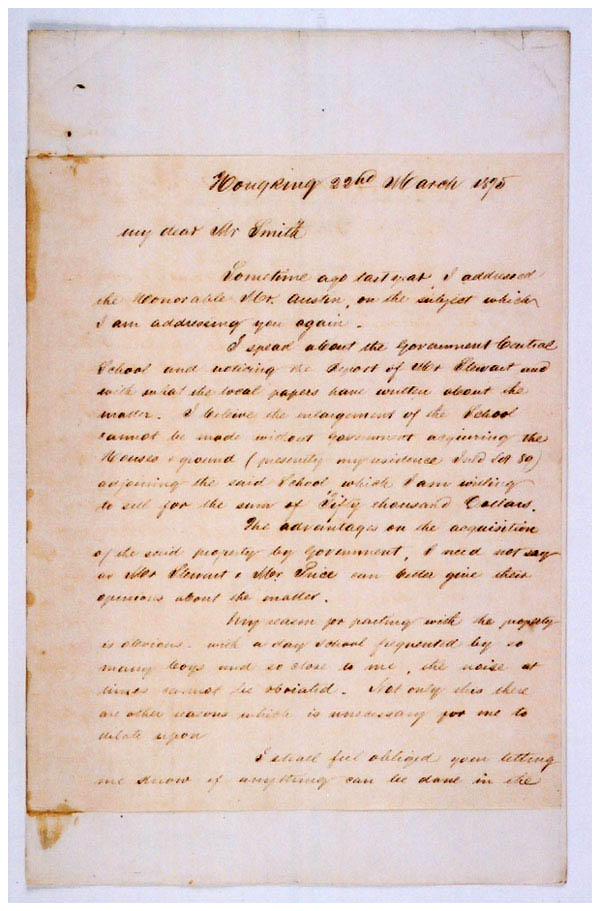 Hongkong 22nd March 1875
My dear Mr Smith
Sometime ago last year I addressed
the Honorable Mr. Austin, on the subject which
I am addressing you again.
I spead about the Government Central
School and noticing the Report of Mr Stewart and
with what the local papers have written about the
matter. I beleive the enlargement of the School
cannot be made without Government acquiring the
Houses & ground (presently my residence Inld Lot 80)
adjoining the said School which I am willing
to sell for the sum of Fifty thousand Dollars.
The advantages on the acquisition
of the said property by Government, I need not say
as Mr Stewart & Mr Price can better give their
openions about the matter.
My reason for parting with the property
is obvious. with a day school frequented by so
many boys and so close to me, the noise at
times cannot be obviated. Not only this there
are other reasons which is unnecessary for me to
dilate upon
I shall feel obliged your letting
me know if anything can be done in the